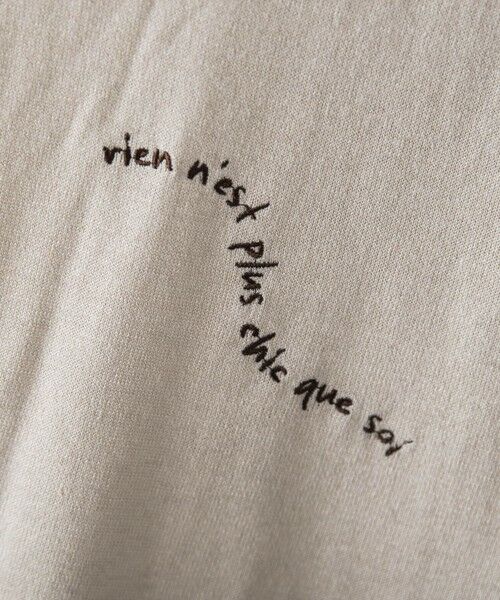 rien n'est plus chic que soi